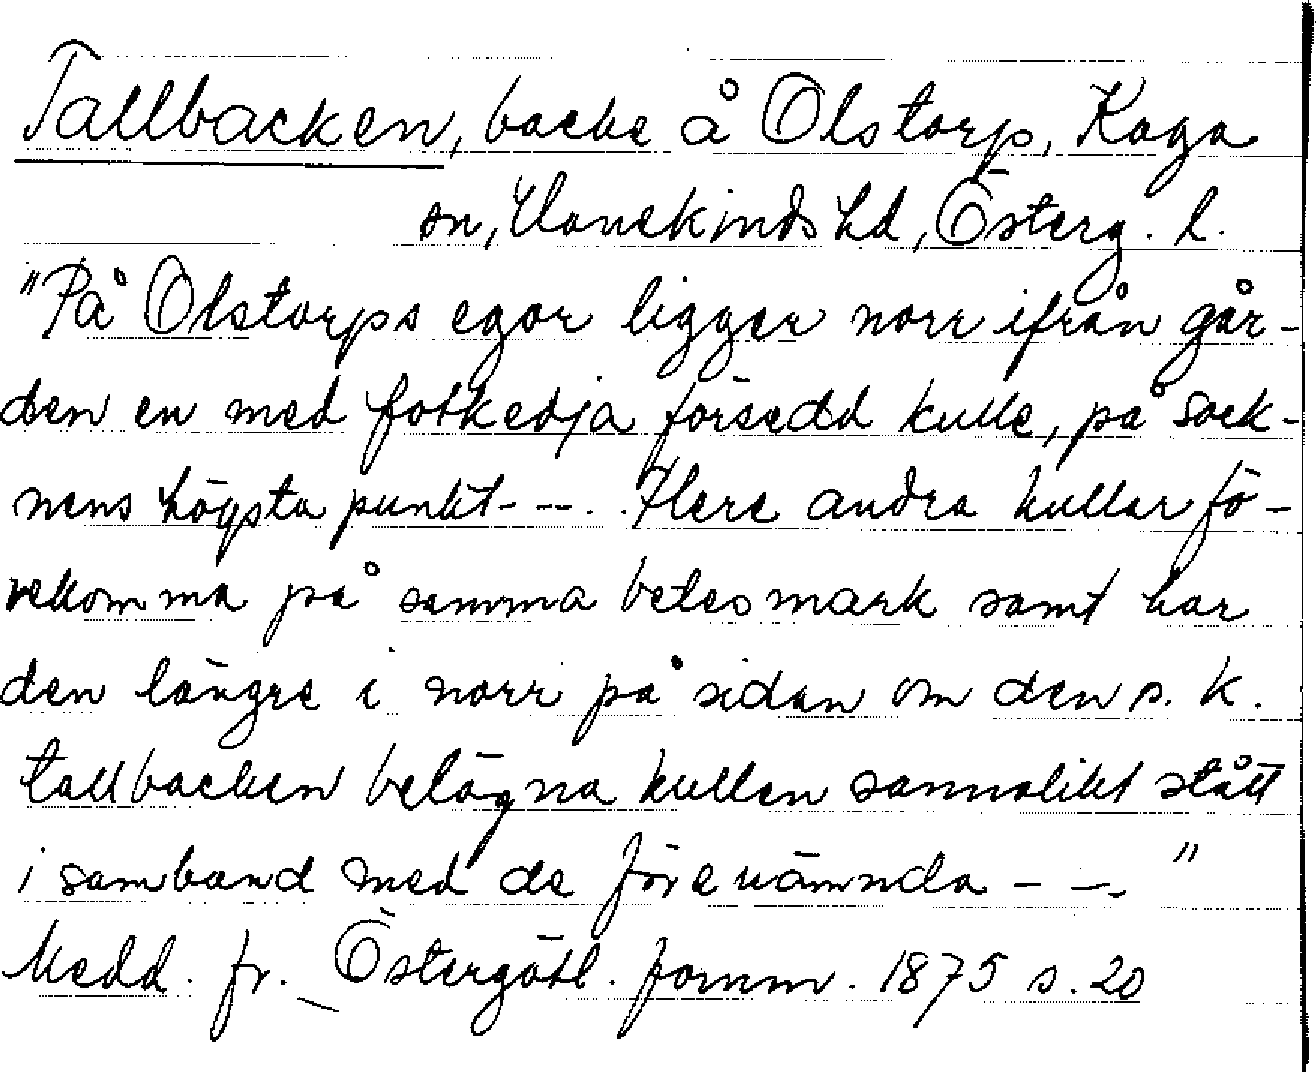 Tallbacken, backe å Olstorp, Kaga
sn, Hanekinds hd, Österg. l.
"På Olstorps egor ligger norr ifrån går-
den en med fotkedja försedd kulle, på sock-
nens högsta punkt - - -. Flere andra kullar fö-
rekomma på samma betesmark samt har
den längre i norr på sidan om den s. k.
tallbacken belägna kullen sannolikt stått
i samband med de förenämnda - - - "
Medd. fr. Östergötl. fornm. 1875 s. 20